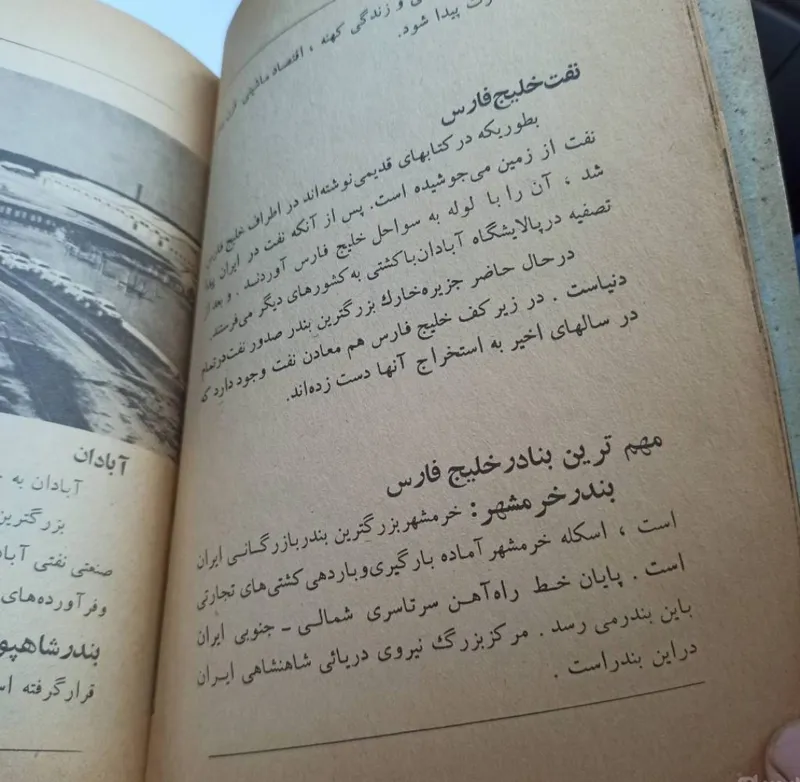 ی و زندگی کهنه ، اقتصاد ماشینی
پیدا شود.
نفت خلیج فارس
بطوریکه در کتابهای قدیمی نوشته‌اند در اطراف خلیج فارس
نفت از زمین می‌جوشیده است. پس از آنکه نفت در ایران پیدا
شد ، آن را با لوله به سواحل خلیج فارس آوردند . و بعد از
تصفیه در پالایشگاه آبادان با کشتی به کشورهای دیگر می‌فرستند.
در حال حاضر جزیره خارك بزرگترین بندر صدور نفت در تمام
دنیاست . در زیر کف خلیج فارس هم معادن نفت وجود دارد که
در سالهای اخیر به استخراج آنها دست زده‌اند.
مهم ترین بنادر خلیج فارس
بندر خرمشهر : خرمشهر بزرگترین بندر بازرگانی ایران
است ، اسکله خرمشهر آماده بارگیری و باردهی کشتی‌های تجارتی
است . پایان خط راه‌آهن سرتاسری شمالی - جنوبی ایران
باین بندر می رسد . مرکز بزرگ نیروی دریائی شاهنشاهی ایران
در این بندر است .
آبادان
آبادان به
بزرگترین
صنعتی نفتی آبا
وفرآورده‌های
بندر شاهپو
قرار گرفته ا